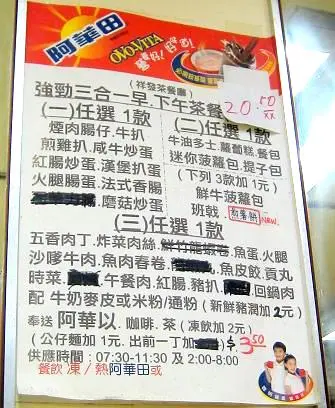 阿華田
OVO-VITA
最好!好的!
(祥發茶餐廳)
強勁三合一早.下午茶餐
20.50
(一)任選 1款
(二)任選 1款
煙肉腸仔.牛扒
牛油多士.蘿蔔糕.餐包
煎雞扒.咸牛炒蛋
迷你菠蘿包.提子包
紅腸炒蛋.漢堡扒蛋
(下列 3款加 1元)
火腿腸蛋.法式香腸
鮮牛菠蘿包
蘑菇炒蛋
班戟.煎薯餅 NEW
(三)任選 1款
五香肉丁.炸菜肉絲.魚蛋.火腿
沙嗲牛肉.魚肉春卷.魚皮餃.貢丸
時菜.午餐肉.紅腸.豬扒.回鍋肉
配 牛奶麥皮或米粉/通粉 (新鮮豬潤加2元)
奉送 阿華以.咖啡.茶 (凍飲加 2元)
(公仔麵加 1元.出前一丁加 $3.50
供應時間:07:30-11:30 及 2:00-8:00
餐飲 凍/熱阿華田或